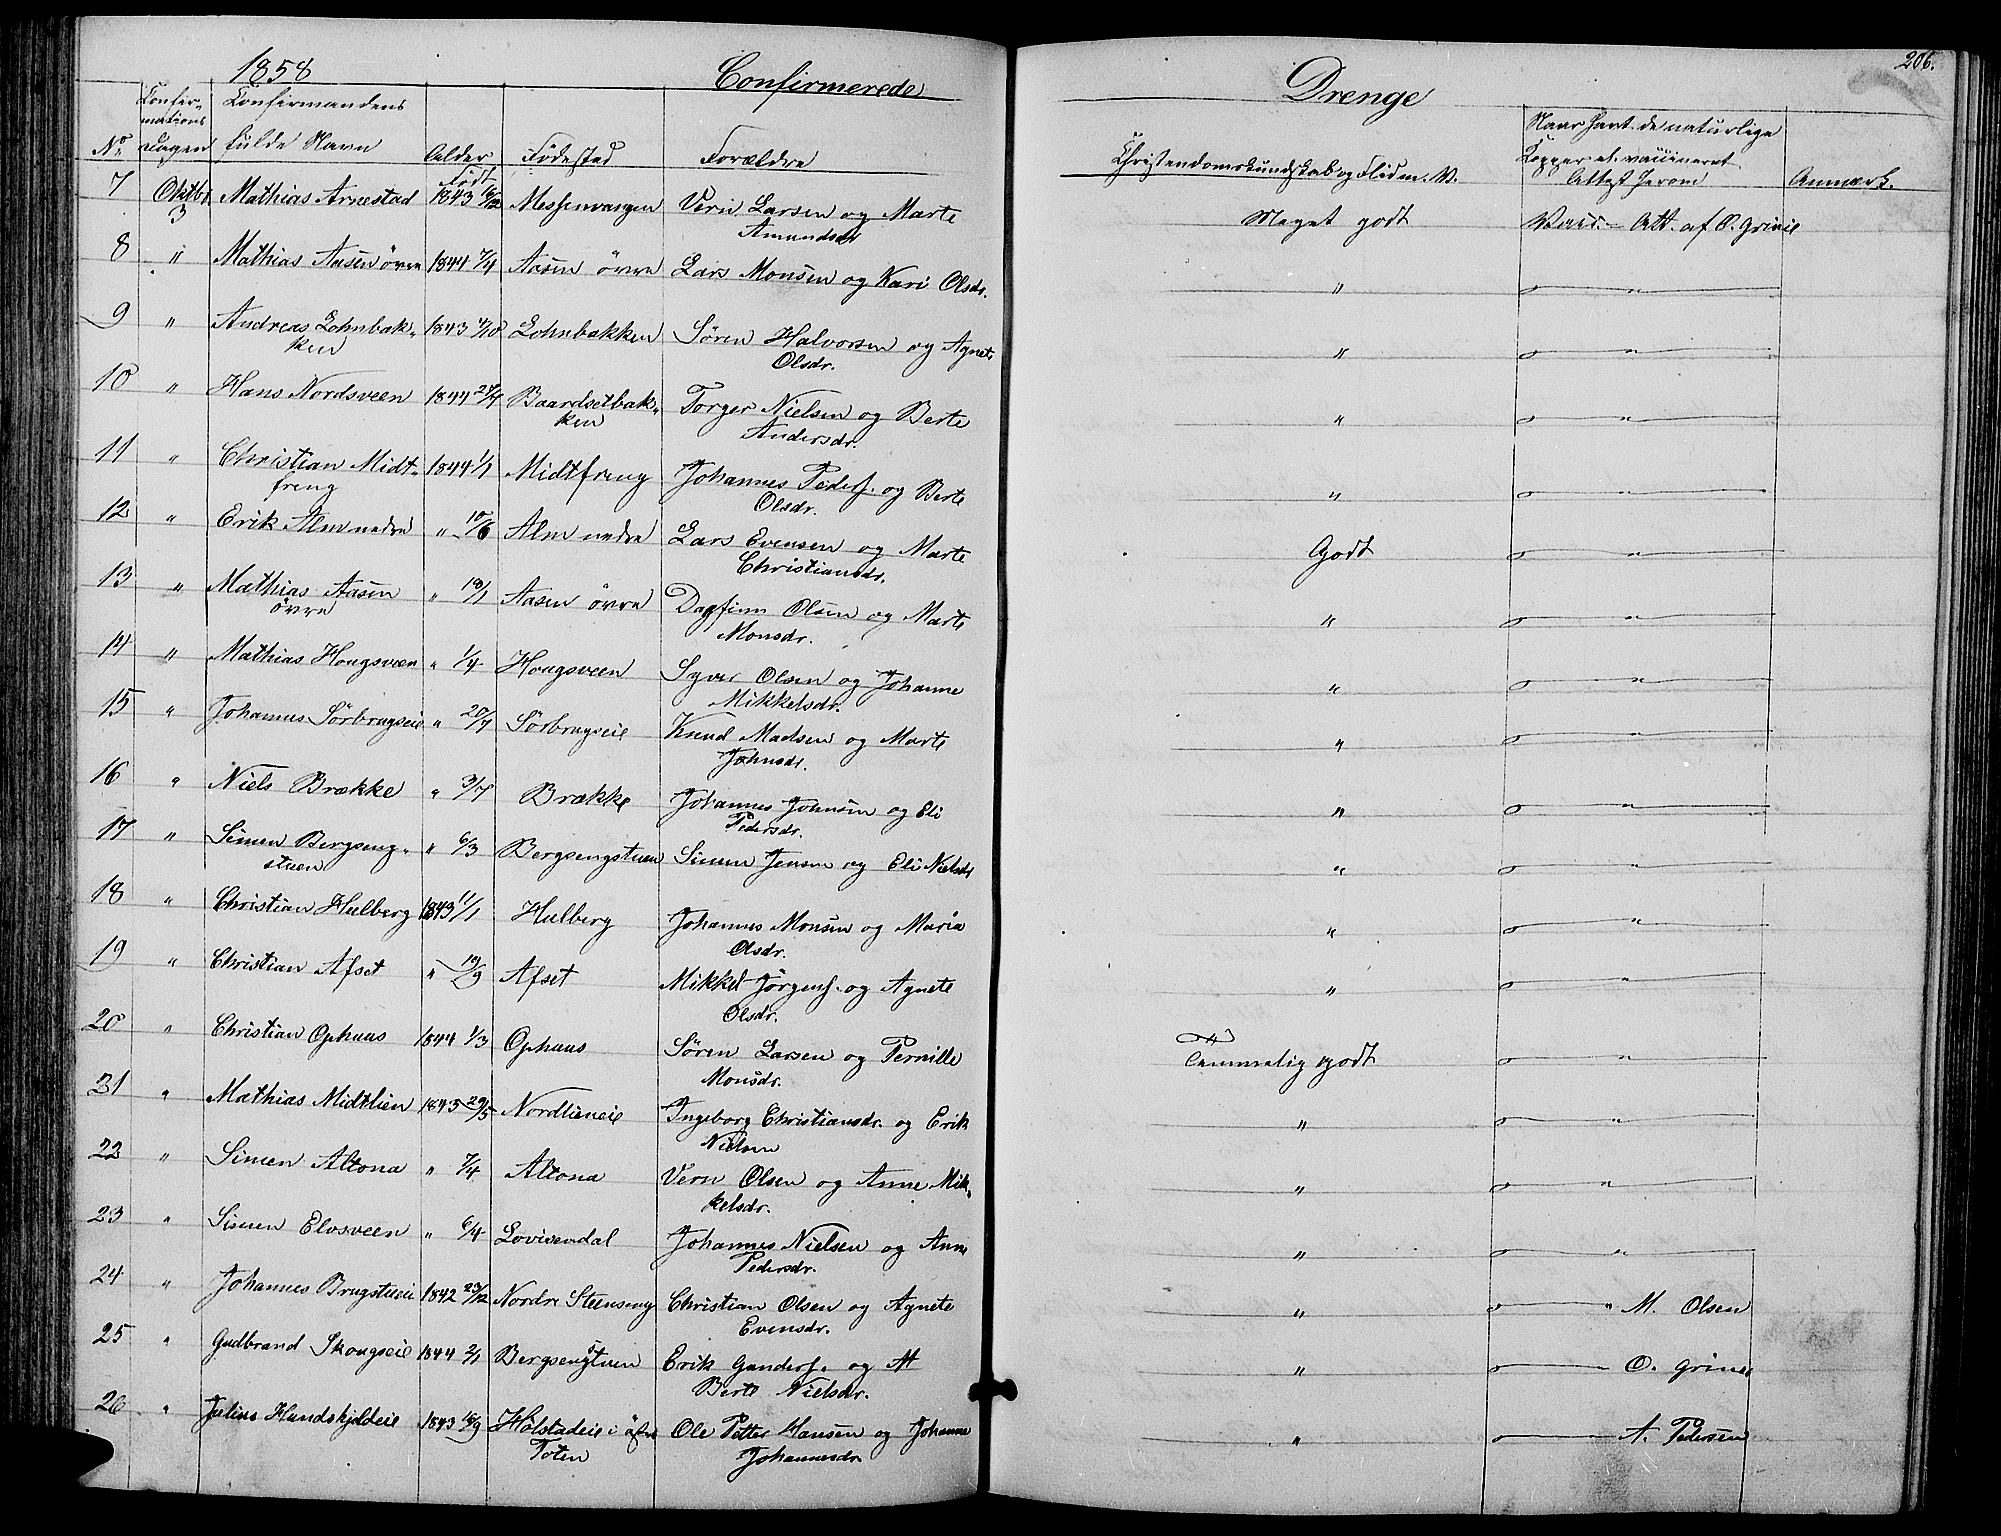 1858 Confirmerede Drenge 206.
No. Confirmations Dagen Confirmandens fulde Navn Alder Født Fødested Forældre Christendomskundskab og Flid m. V. Naar havt de naturlige Kopper el. vaccineret Attest herom Anmærk.
7 Oktbr 3 Mathias Arnestad 1843 6/12 Messenvangen Larsen og Marte Amundsdr Meget godt Vacc. - Att. af O. Grinie
8 " Mathias Aasen övre 1844 7/4 Aasen övre Lars Monsen og Kari Olsdr. " "
9 " Andreas Lohnbakken 1843 4/10 Lohnbakken Søren Halvorsen og Agnete Olsdr. " "
10 " Hans Nordsveen 1844 24/4 Baardsetbakken Torger Nielsen og Berte Andersdr. " "
11 " Christian Midtfreng 1844 1/1 Midtfreng Johannes Peders. og Berte Olsdr. " "
12 " Erik Alm nedre " 10/6 Alm nedre Lars Evensen og Marte Christiansdr. Godt "
13 " Mathias Aasen övre " 18/1 Aasen övre Dagfinn Olsen og Marte Monsdr. " "
14 " Mathias Hougsveen " 1/4 Hougsveen Syver Olsen og Johanne Mikkelsdr. " "
15 " Johannes Sörbrugseie " 20/7 Sörbrugseie Knud Madsen og Marte Johnsdr. " "
16 " Niels Brække " 3/7 Brække Johannes Johnsen og Eli Pedersdr. " "
17 " Simen Bergsengstuen " 6/3 Bergsengstuen Simen Jensen og Eli Nielsdr " "
18 " Christian Hulberg 1843 11/1 Hulberg Johannes Monsen og Maria Olsdr. " "
19 " Christian Afset " 19/9 Afset Mikkel Jörgens. og Agnete Olsdr. " "
20 " Christian Ophuus 1844 1/3 Ophuus Søren Larsen og Pernille Monsdr. Temmelig godt "
21 " Mathias Midtlien 1843 29/5 Nordlieneie Ingeborg Christiansdr. og Erik Nielsen " "
22 " Simen Altona " 7/4 Altona Vern Olsen og Anne Mikkelsdr. " "
23 " Simen Elvsveen " 6/4 Lovisendal Johannes Nielsen og Anne Pedersdr. " "
24 " Johannes Brugstueie 1842 23/12 Nordre Steenseng Christian Olsen og Agnete Evensdr. " " M. Olsen
25 " Gudbrand Skougseie 1844 2/1 Bergsengstuen Erik Gunders. og Berte Nielsdr. " O. Grinie
26 " Julius Hundskjoldeie 1843 18/9 Holstadeie i östre Toten Ole Petter Hansen og Johanne Johannesdr " A. Pedersen